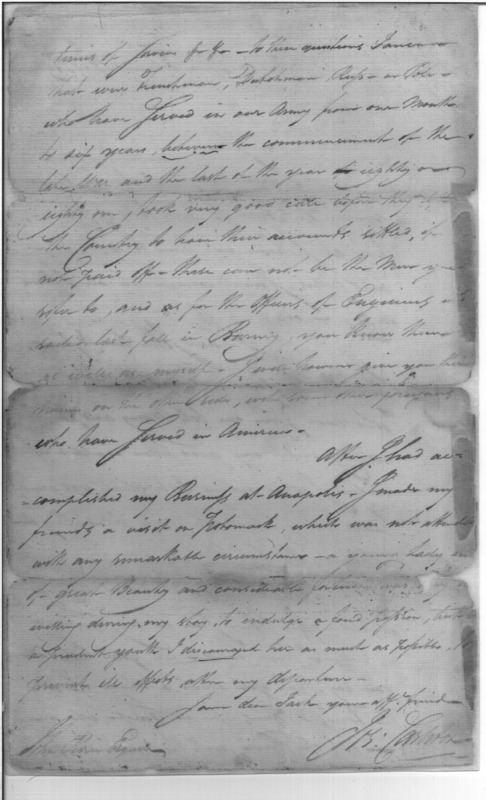 terms of Service &c &c – to these questions I answer
that were Frenchmen, Dutchmen, Russ – or Pole –
who have Served in our Army from one Month
to six years, between the commencement of the
late War and the last of the year eighty or
eighty one, took very good care before they
the Country to have their accounts settled, if
not paid off – these can not be the Men you
refer to, and as for the Officers of Engineers
last fall in you know them
as well as myself – I will however give you their
names on the other side, with some other foreigners
who have Served in America –
After I had ac-
-complished my Business at Anapolis – I made my
friends a visit on Potomack, which was not attended
with any remarkable circumstance – a young Lady
of great Beauty and considerable fortune
willing during my stay, to indulge a fond passion, but
a prudent youth I discouraged her as much as possible, to
prevent ill effects after my departure –
I am dear Jack your aff. friend